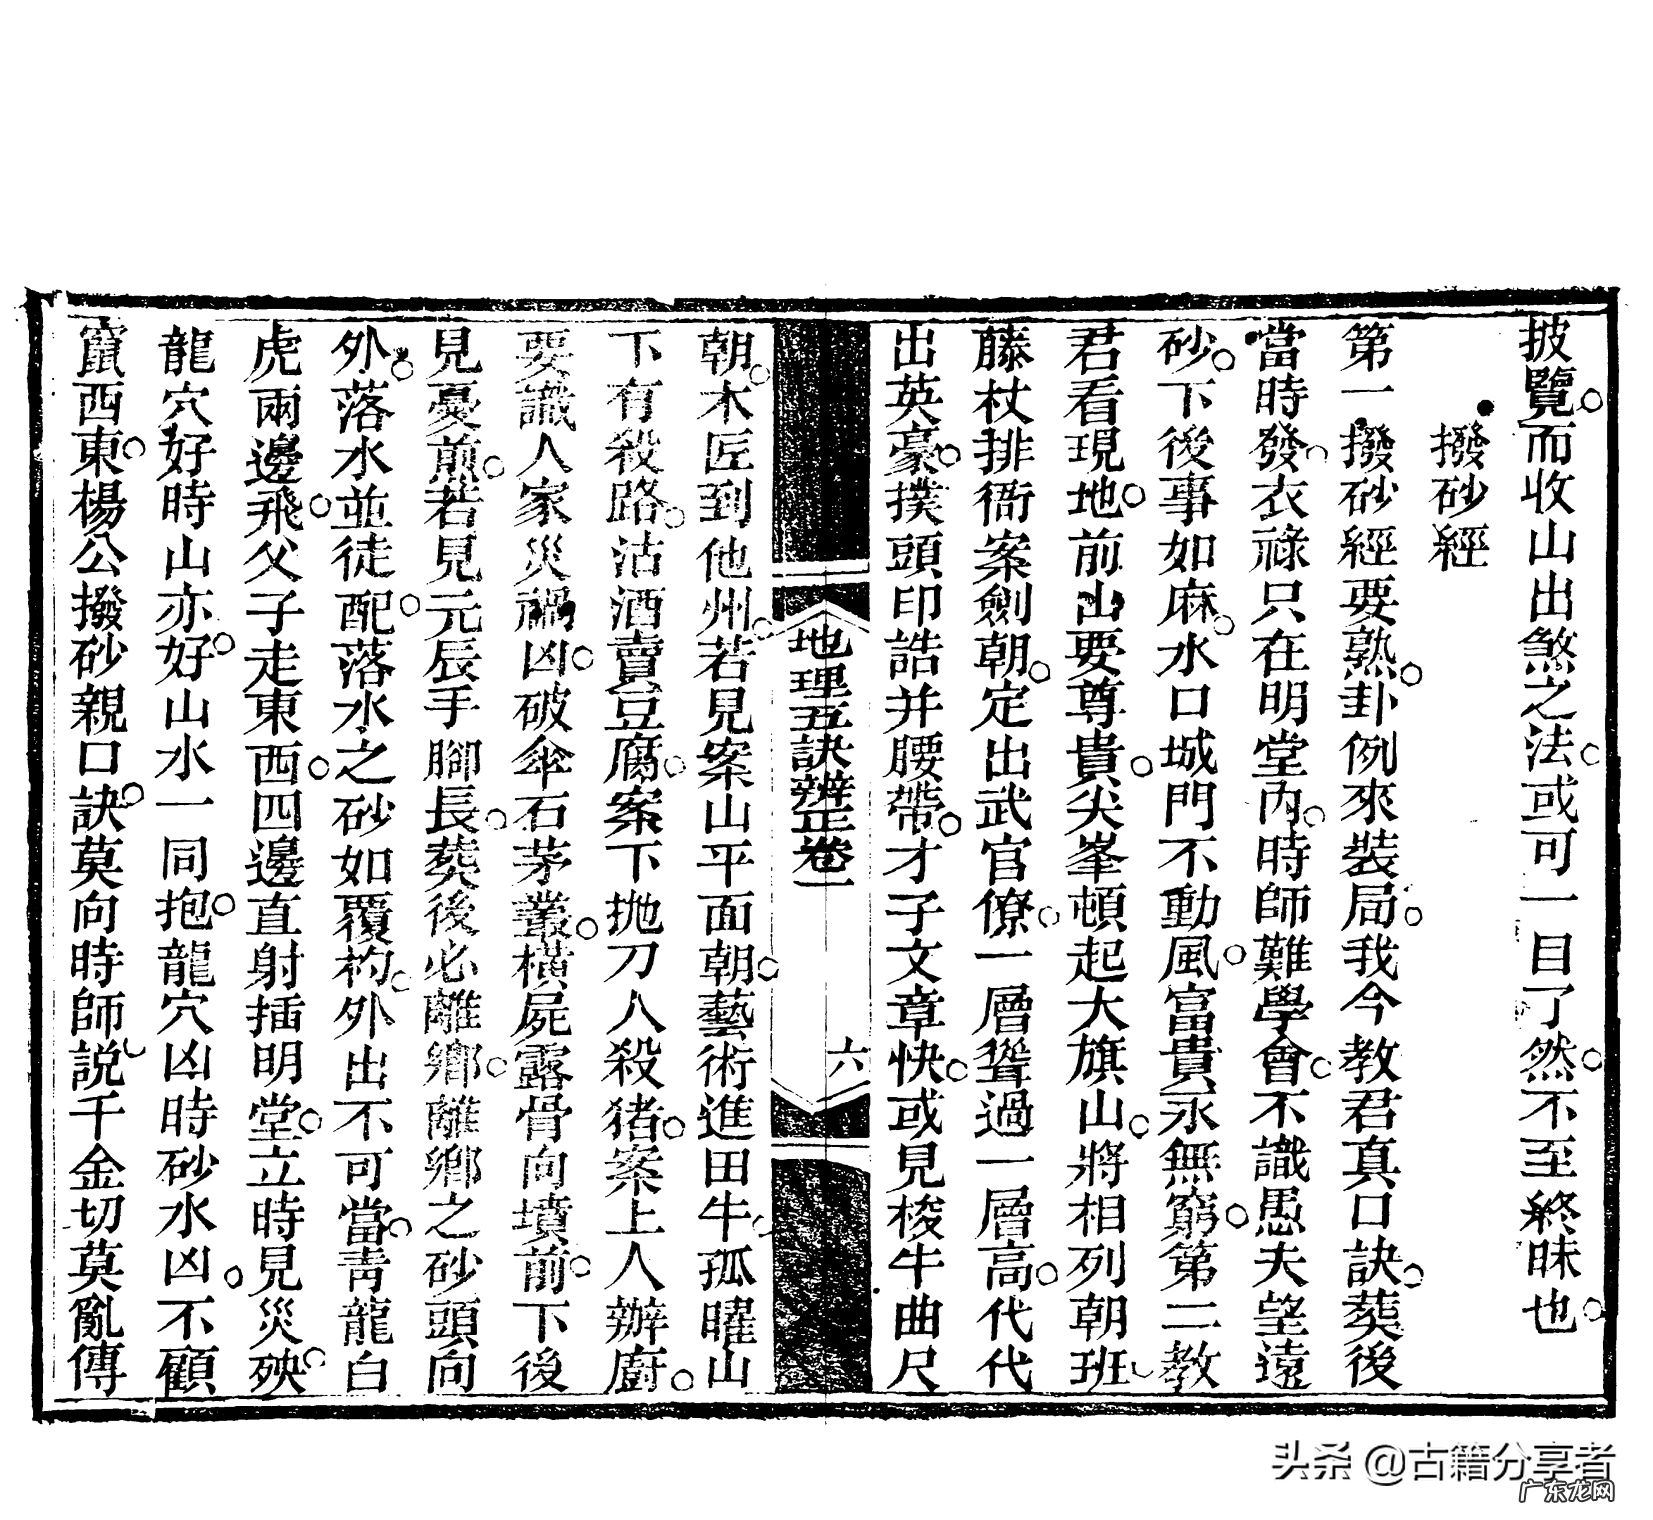 披覽而收山出煞之法或可一目了然不至終昧也
撥砂經
第一撥砂經要熟卦例來裝局我今教君真口訣葬後
當時發衣祿只在明堂內時師難學會不識愚夫望遠
砂下後事如麻水口城門不動風富貴永無窮第二教
君看現地前山要尊貴尖峯頓起大旗山將相列朝班
藤杖排衙案劍朝定出武官僚一層聳過一層高代代
出英豪撲頭印誥并腰帶才子文章快或見梭牛曲尺
地理五訣辨正卷一
六
朝木匠到他州若見案山平面朝藝術進田牛孤曜山
下有殺路沽酒賣豆腐案下拋刀人殺猪案上人辦廚
要識人家災禍凶破傘石茅叢橫屍露骨向墳前下後
見憂煎若見元辰手腳長葬後必離鄉離鄉之砂頭向
外落水並徒配落水之砂如覆杓外出不可當青龍白
虎兩邊飛父子走東西四邊直射插明堂立時見災殃
龍穴好時山亦好山水一同抱龍穴凶時砂水凶不顧
竄西東楊公撥砂親口訣莫向時師說千金切莫亂傳
头条 @古籍分享者
广东龙网